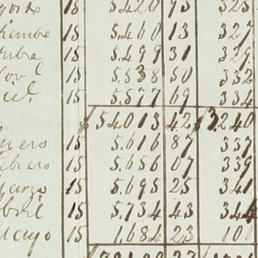 15 5.420 93 325
tiembre 15 5.460 13 327
tubre 15 5.499 31 329
Nov.l 15 5.538 50 332
15 5.577 69 334
$54.013 42 $3.240
nero 15 5.616 87 337
ebrero 15 5.656 07 339
Marzo 15 5.695 25 341
Abril 15 5.734 43 344
Mayo 15 1.684 23 101